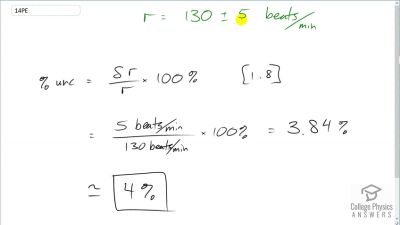 14PE
r = 130 ± 5 beats/min
% unc = δr/r × 100% [1.8]
= 5 beats/min / 130 beats/min × 100% = 3.84%
≃ 4%
College Physics
ANSWERS